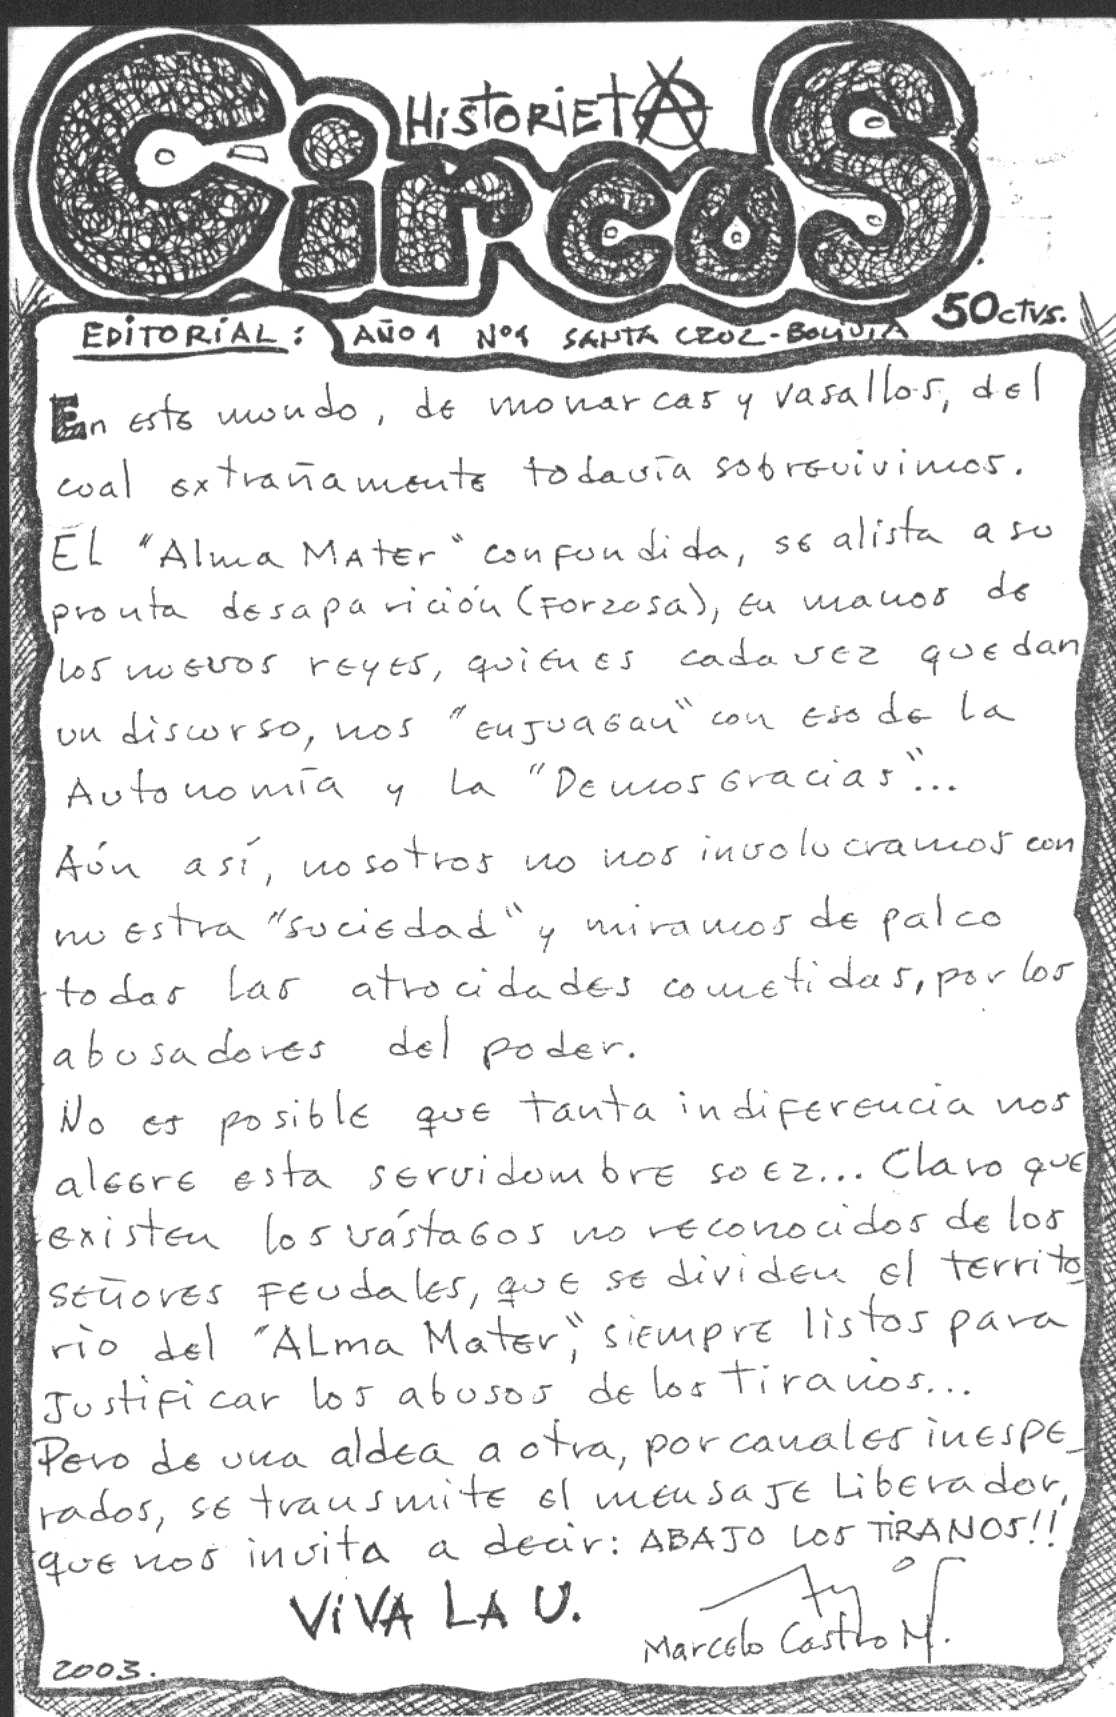 HistorietA
CircoS
50 ctvs.
EDITORIAL: AÑO 1 Nº1 SANTA CRUZ-BOLIVIA
En este mundo, de monarcas y vasallos, del
cual extrañamente todavía sobrevivimos.
El "Alma Mater" confundida, se alista a su
pronta desaparición (Forzosa), en manos de
los nuevos reyes, quiénes cada vez que dan
un discurso, nos "enjuagan" con eso de la
Autonomía y la "Demosgracias"...
Aún así, nosotros no nos involucramos con
nuestra "suciedad" y miramos de palco
todas las atrocidades cometidas, por los
abusadores del poder.
No es posible que tanta indiferencia nos
alegre esta servidumbre soez... Claro que
existen los vástagos no reconocidos de los
señores Feudales, que se dividen el territo
rio del "Alma Mater", siempre listos para
Justificar los abusos de los tiranos...
Pero de una aldea a otra, por canales inespe_
rados, se transmite el mensaje Liberador,
que nos invita a decir: ABAJO LOS TIRANOS!!
ViVA LA U.
Marcelo Castro M.
2003.